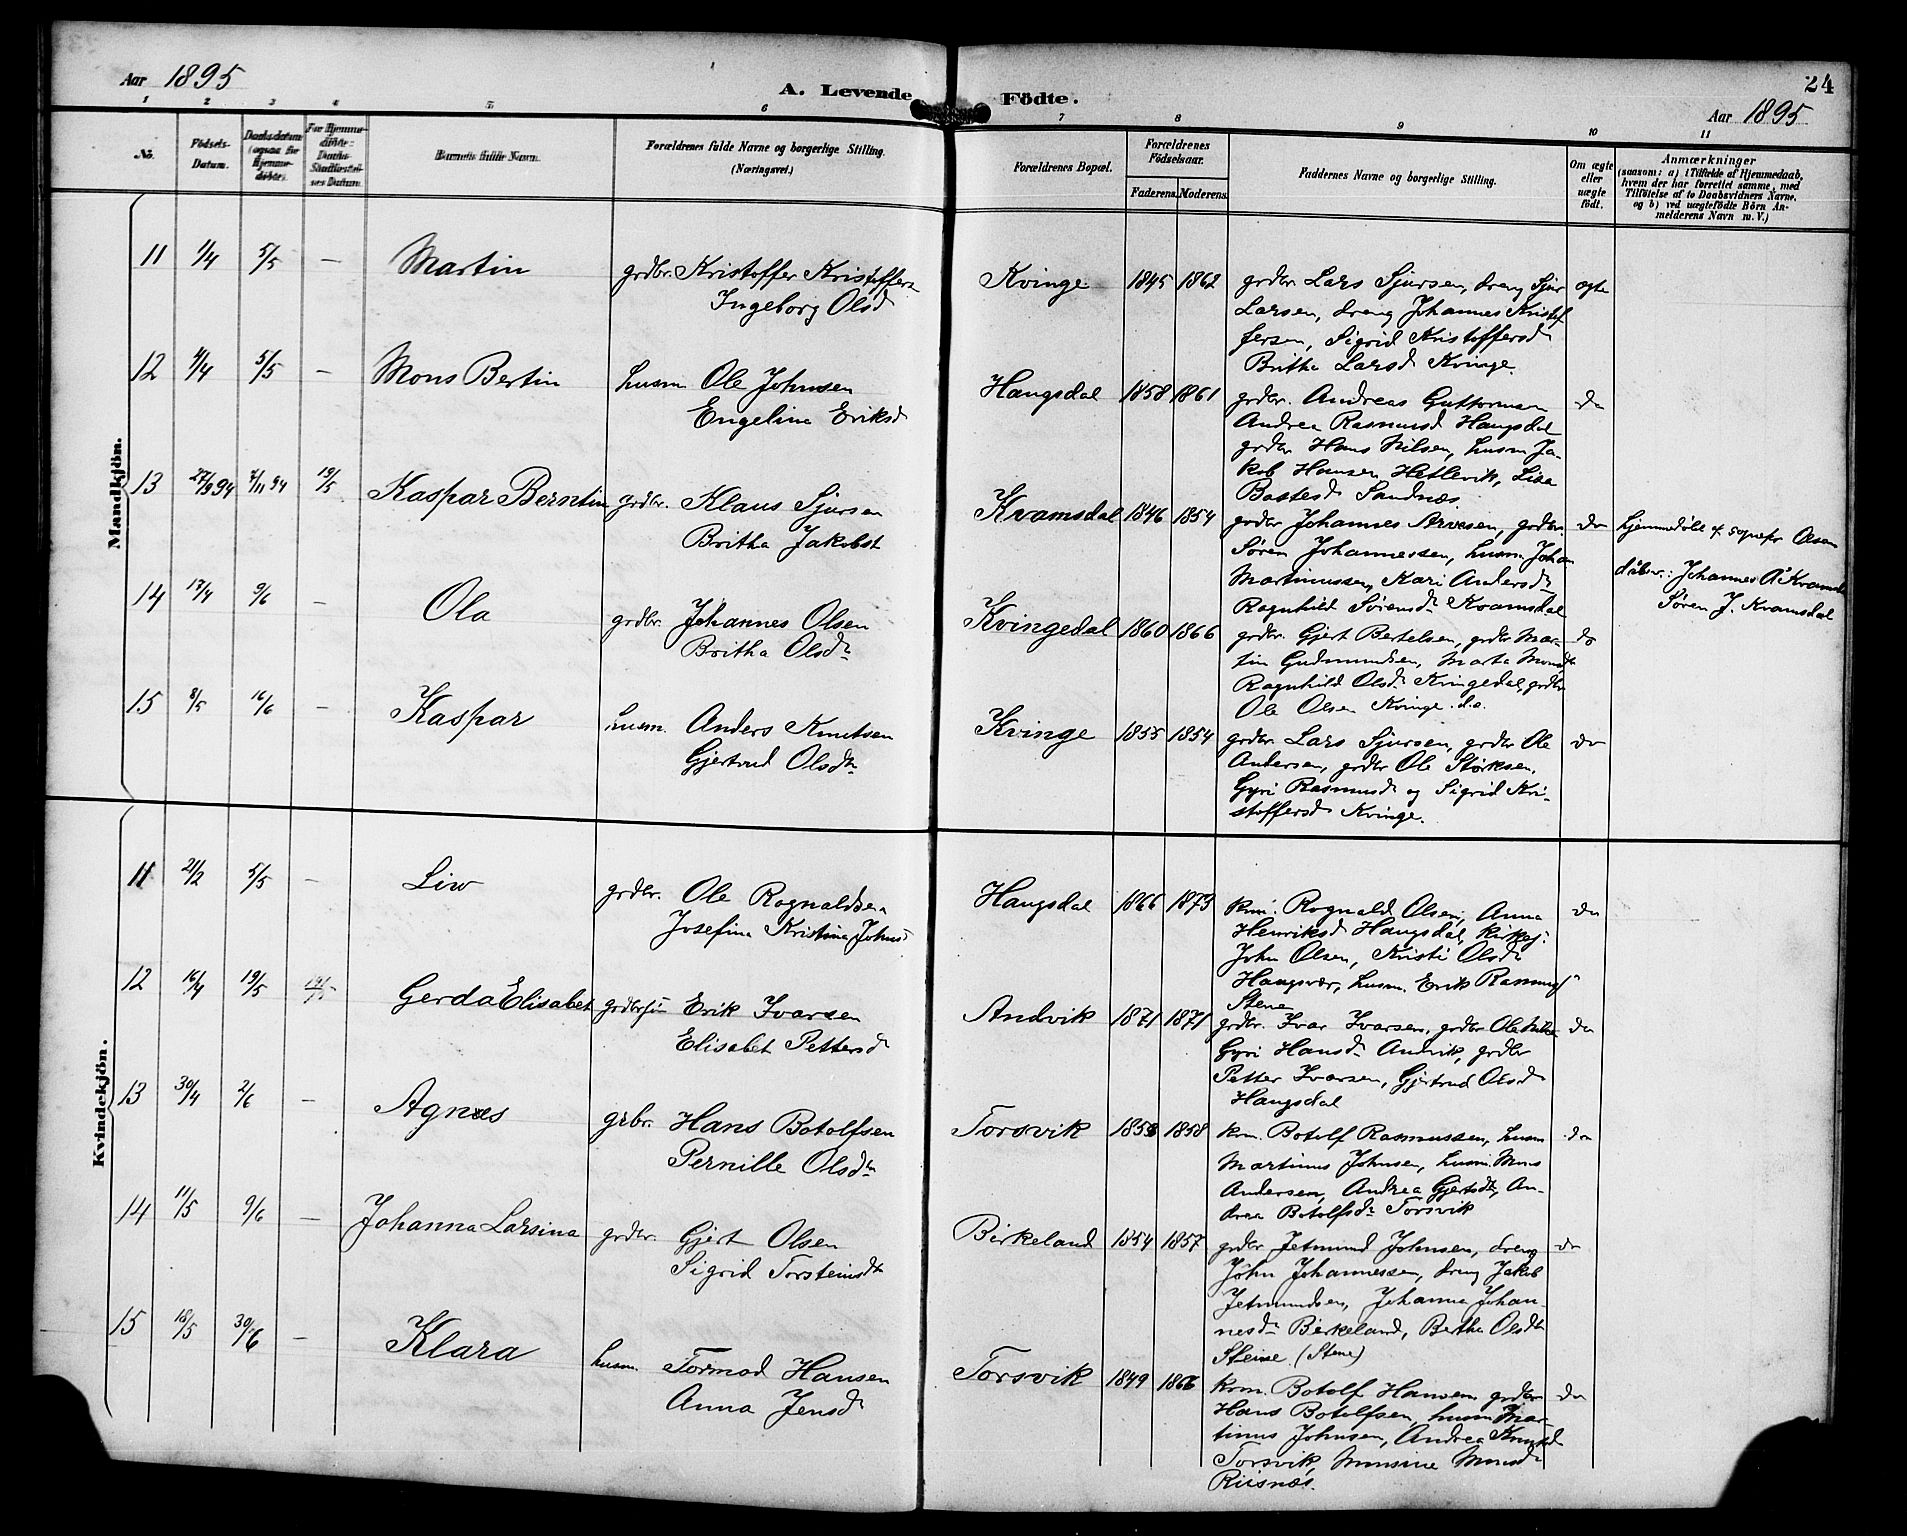 Aar 1895
A. Levende Födte.
24
Aar 1895
1 2 3 4 5 6 7 8 9 10 11
No.
Födsels-
Datum.
Daabsdatum
(ogsaa for
Hjemme-
döbte).
For Hjemme-
döbte:
Daabs-
Stadfæstel-
ses Datum.
Barnets fulde Navn.
Forældrenes fulde Navne og borgerlige Stilling.
(Næringsvei.)
Forældrenes Bopæl.
Forældrenes
Födselsaar.
Faderens. Moderens.
Faddernes Navne og borgerlige Stilling.
Om ægte
eller
uægte
födt.
Anmærkninger
(saasom: a) i Tilfælde af Hjemmedaab,
hvem der har forrettet samme, med
Tilföielse af to Daabsvidners Navne,
og b) ved uægtefödte Börn An-
melderens Navn m. V.)
Mandkjön.
11 1/4 5/5 — Martin
grdbr. Kristoffer Kristoffers
Ingeborg Olsd
Kvinge 1845 1862
grdbr Lars Sjursen, dreng Sjur
Larsen, dreng Johannes Kristof
fersen, Sigrid Kristoffersd
Britha Larsd Kvinge.
ægte
12 4/4 5/5 — Mons Bertin
husm Ole Johnsen
Engeline Eriksd
Haugsdal 1858 1861
grdbr. Andreas Guttormsen
Andrea Rasmusd Haugsdal
grdbr Hans Nilsen, husm Ja-
kob Hansen Hetlevik, Lisa
Bastesd Sandnæs.
do
13 27/9 94 7/11 94 19/5 Kaspar Berntin
grdbr. Klaus Sjursen
Britha Jakobsd
Kvamsdal 1846 1854
grdbr Johannes Arvesen, grdbr.
Søren Johannessen, husm Johan
Martinussen, Kari Andersd
Ragnhild Sørensd Kvamsdal
do
hjemmedøbt af sognepr Olsen
dåbsv.: Johannes A Kvamsdal
Søren J. Kvamsdal
14 17/4 9/6 — Ola
grdbr. Johannes Olsen
Britha Olsd
Kvingedal 1860 1866
grdbr. Gjert Bertelsen, grdbr Mar-
tin Gudmundsen, Marta Monsd
Ragnhild Olsd Kvingedal, grdbr
Ole Olsen Kvinge.
do
15 8/5 16/6 — Kaspar
husm. Anders Knutsen
Gjertrud Olsd
Kvinge 1855 1854
grdbr. Lars Sjursen, grdbr Ole
Andersen, grdbr Ole Størksen.
Gyri Rasmusd og Sigrid Kri-
stoffersd Kvinge.
do
Kvindekjön.
11 21/2 5/5 — Liv
grdbr. Ole Rognaldsen
Josefina Kristina Johnsd
Haugsdal 1866 1873
krm. Rognald Olsen, Anna
Henriksd Haugsdal, kirkesj.
John Olsen, Kristi Olsd
Haugsvær, husm. Erik Rasmuss
Stene
do
12 16/4 19/5 19/5 Gerda Elisabet
grdbrs Erik Ivarsen
Elisabet Pettersd
Andvik 1871 1871
grdbr. Ivar Ivarsen, grdbr Ole Nilsen
Gyri Hansd Andvik, grdbr
Petter Ivarsen, Gjertrud Olsd
Haugsdal
do
13 30/4 2/6 — Agnes
grbr. Hans Botolfsen
Pernille Olsd
Torsvik 1853 1858
krm. Botolf Rasmussen, husm
Martinus Johnsen, husm. Mons
Andersen, Andrea Gjertsd, An-
drea Botolfsd Torsvik
do
14 11/5 9/6 — Johanna Larsina
grdbr. Gjert Olsen
Sigrid Torsteinsd
Birkeland 1854 1857
grdbr Jetmund Johnsen, dreng
John Johannessen, dreng Jakob
Jetmundsen, Johanna Johan-
nesd Birkeland, Bertha Olsd
Steine (Stene)
do
15 18/5 30/6 — Klara
husm. Tormod Hansen
Anna Jensd
Torsvik 1849 1866
krm. Botolf Hansen grdbr
Hans Botolfsen, husm Mar-
tinus Johnsen, Andrea Knutsd
Torsvik, Monsine Monsd
Riisnæs.
do